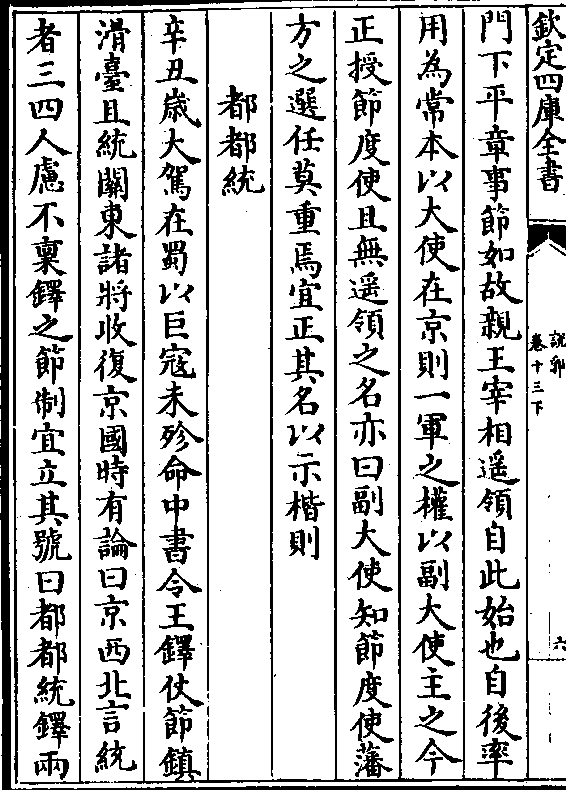 欽定四庫全書
說郛
卷十三下
六
門下平章事節如故親王宰相遥領自此始也自後率
用為常本以大使在京則一軍之權以副大使主之今
正授節度使且無遥領之名亦曰副大使知節度使藩
方之選任莫重焉宜正其名以示楷則
都都統
辛丑歲大駕在蜀以巨寇未殄命中書令王鐸仗節鎮
滑臺且統關東諸將收復京國時有論曰京西北言統
者三四人慮不稟鐸之節制宜立其號曰都都統鐸兩